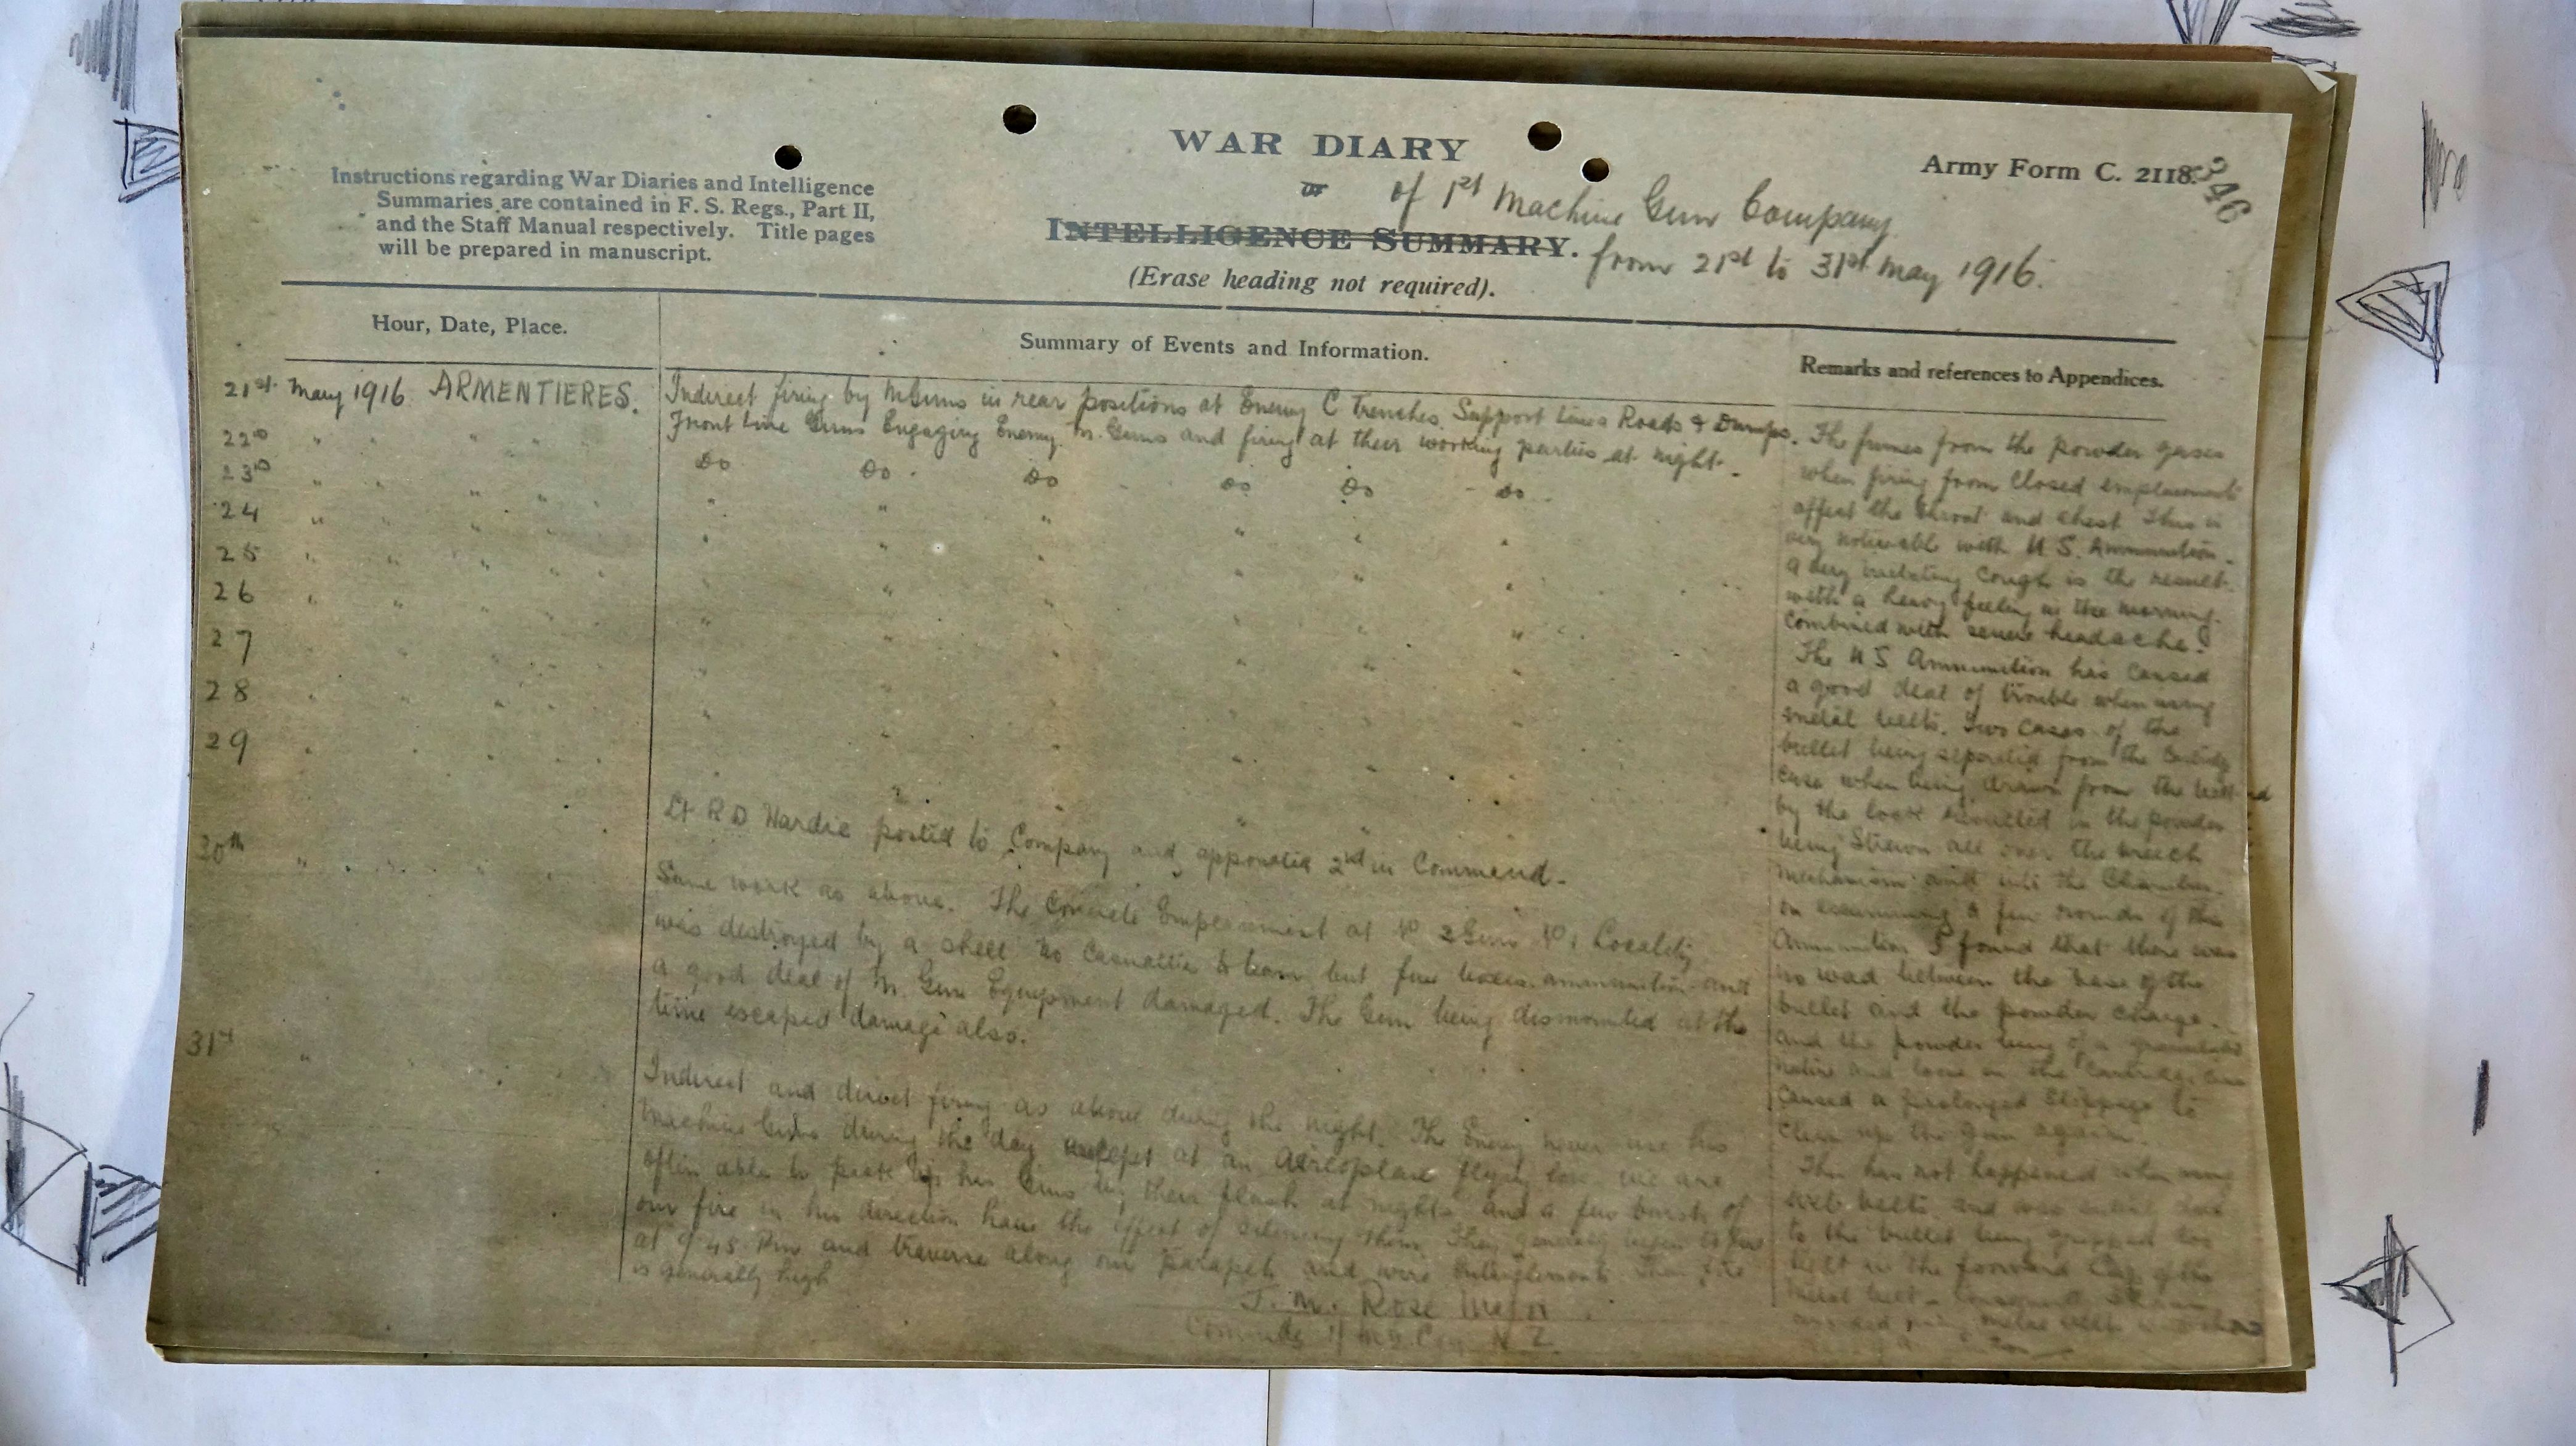 WAR DIARY
or
of 1st Machine Gun Company
INTELLIGENCE SUMMARY.
from 21st to 31st May 1916.
(Erase heading not required).
Army Form C. 2118.
346
Instructions regarding War Diaries and Intelligence
Summaries are contained in F. S. Regs., Part II,
and the Staff Manual respectively. Title pages
will be prepared in manuscript.
Hour, Date, Place.
Summary of Events and Information.
Remarks and references to Appendices.
21st May 1916 ARMENTIERES.
22nd " " "
23rd " " "
24 " " "
25 " " "
26 " " "
27
28
29
30th
31st
Indirect firing by M Guns in rear positions at Enemy C Trenches, Support Lines Roads & Dumps.
Front Line Guns Engaging Enemy M. Guns and firing at their working parties at night.
Do Do Do Do Do Do
Lt R D Hardie posted to Company and appointed 2nd in Command.
Same work as above. The Concrete Emplacement at No 2 Gun No 1 Locality
was destroyed by a shell no casualties to team but five boxes ammunition and
a good deal of M. Gun Equipment damaged. The Gun being dismounted at the
time escaped damage also.
Indirect and direct firing as above during the night. The Enemy never use his
Machine Guns during the day except at an Aeroplane flying low. We are
often able to pick up his Guns by their flash at nights and a few bursts of
our fire in his direction have the effect of silencing them. They generally begin to fire
at 9.45 Pm and traverse along our parapet and wire Entanglements fire
is generally high
J. M. Rose Major
Commdg 1/ M G. Coy N Z
The fumes from the powder gases
when firing from Closed emplacements
affect the throat and chest. This is
very noticeable with U.S. Ammunition.
A very irritating cough is the result
with a heavy feeling in the morning
combined with severe headache.
The U S Ammunition has caused
a good deal of trouble when using
metal belts. Two cases of the
bullet being separated from the Cartridge
case when being drawn from the belt
by the lock resulted in the powder
being strewn all over the breech
mechanism and into the Chamber.
On examining a few rounds of this
Ammunition I found that there was
no wad between the base of the
bullet and the powder charge.
and the powder being of a granulated
nature and loose in the Cartridge case
caused a prolonged stoppage to
clean up the gun again.
This has not happened when using
web belts and was
to the bullet being gripped too
in the forward of the
metal belt
metal belts